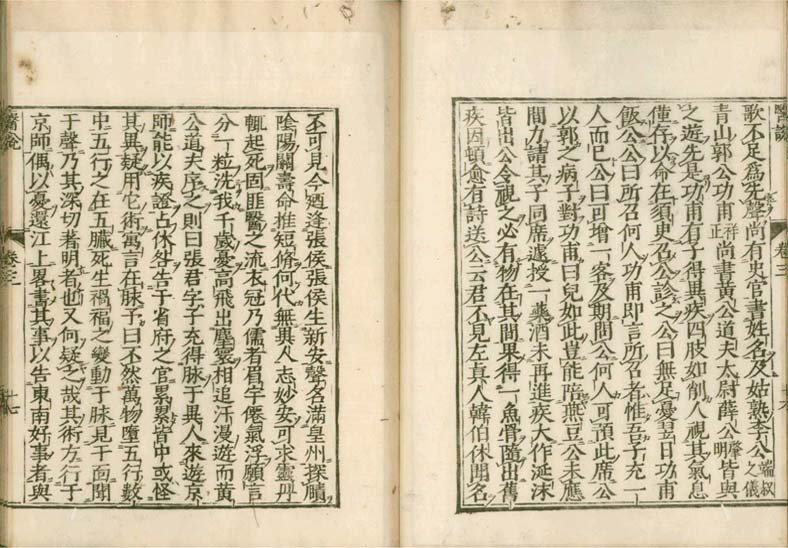 醫說
卷三
十六
歌不足爲先聲尚有史官書姓名及姑熟李公端叔之儀
青山郭公功甫祥正尚書黃公道夫太尉薛公肇明皆與
之遊先是功甫有子得異疾四肢如削人視其氣息
僅存以命在須臾召公診之公曰無足憂翌日功甫
飯公公曰所召何人功甫即言所召者惟吾子充一
人而已公曰可增一客及期問公何人可預此席公
以郭之病子對功甫曰兒如此豈能陪燕豆公未應
間力請其子同席遽授一藥酒未再進疾大作涎沫
皆出公令視之必有物在其間果得一魚骨隨出舊
疾因頓愈有詩送公云君不見左真人韓伯休閒名
不可見今廼逢張侯張侯生新安聲名滿皇州探賾
陰陽關壽命推短脩何代無異人志妙安可求靈丹
輒起死固匪醫之流衣冠乃儒者眉宇僊氣浮願言
分一粒洗我千歲憂高飛出塵寰相追汗漫遊而黃
公道夫序之則曰張君字子充得脉于異人來遊京
師能以疾證占休咎告于省府之官累累皆中或怪
其異疑用它術寓言在脉予曰不然萬物墮五行數
中五行之在五臟死生禍福之變動于脉見于面聞
于聲乃其深切著明者也又何疑之哉其術方行于
京師偶以憂還江上畧書其事以告東南好事者與
卷三
十七